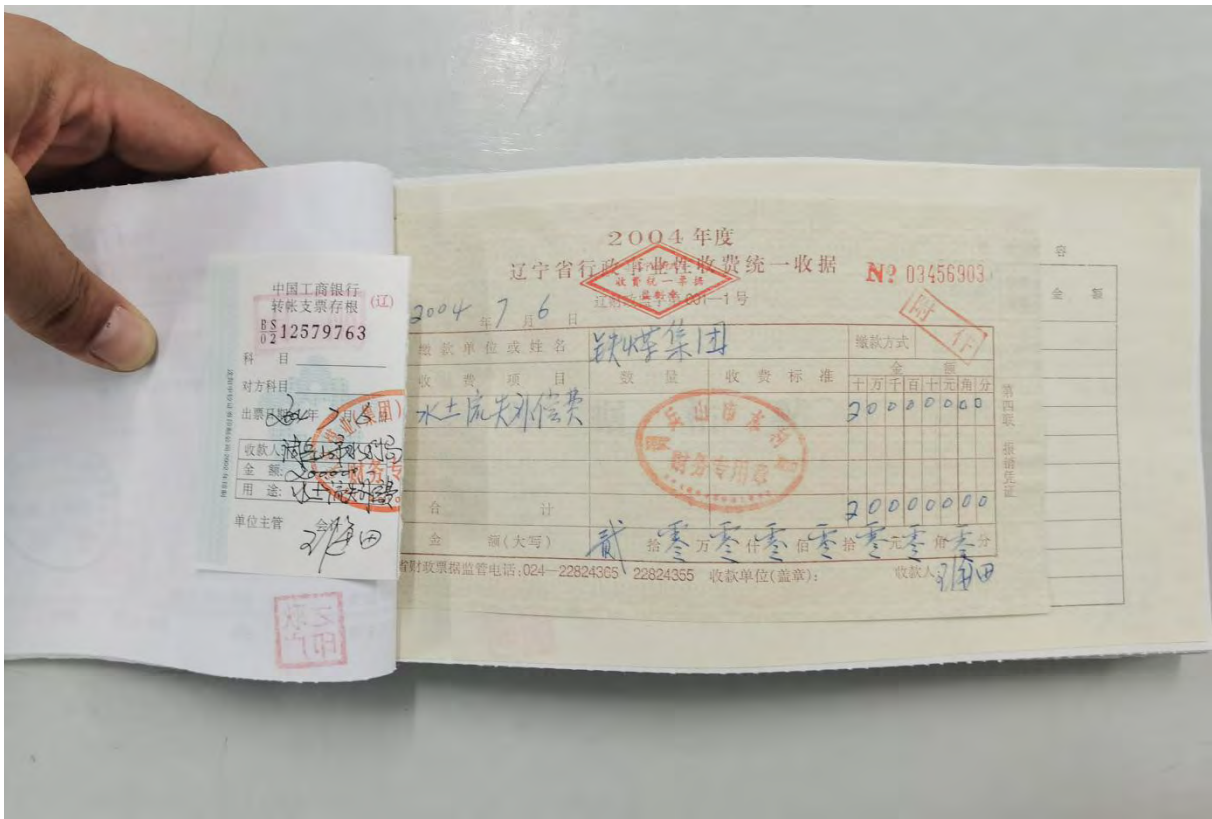 中国工商银行
转帐支票存根
(辽)
BS
02 12579763
科 目
对方科目
出票日期 2004年 7月 6日
收款人:
金 额:
用 途: 水土流失补偿费
单位主管 会计
2004年度
辽宁省行政事业性收费统一收据
№ 03456903
收费统一票据
031—1号
2004 年 7 月 6 日
附件
缴款单位或姓名 铁煤集团 缴款方式
收 费 项 目 数 量 收 费 标 准 金 额
十 万 千 百 十 元 角 分
水土流失补偿费 20000000
财务专用章
合 计 20000000
金 额(大写) 贰 拾 零 万 零 仟 零 佰 零 拾 零 元 零 角 零 分
省财政票据监管电话:024—22824365 22824355 收款单位(盖章): 收款人
第四联 报销凭证
容
金 额